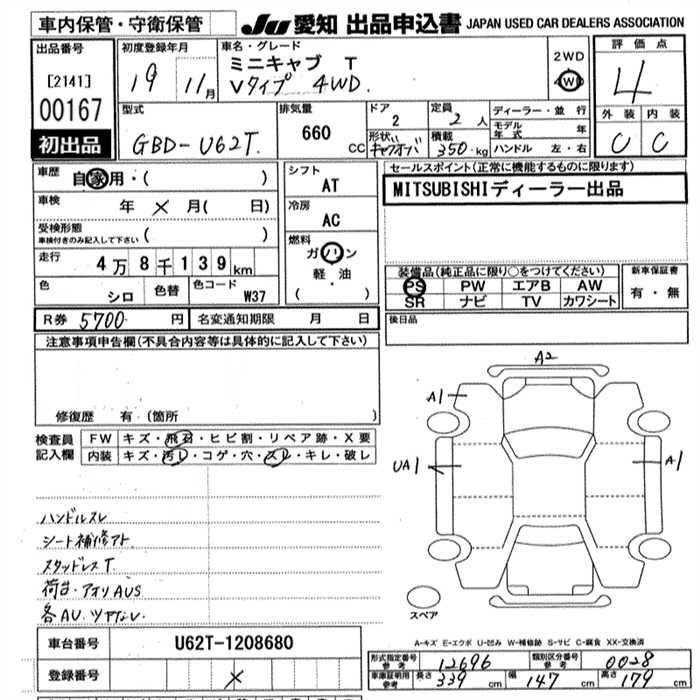 車内保管・守衛保管
JU 愛知 出品申込書 JAPAN USED CAR DEALERS ASSOCIATION
出品番号
[2141]
00167
初出品
初度登録年月
19 11月
車名・グレード
ミニキャブ T
Vタイプ 4WD.
2WD
4WD
評価点
4
外装 内装
C C
型式
GBD-U62T.
排気量
660
CC
ドア
2
形状
定員
2人
積載
350kg
ディーラー・並行
モデル年式 年
ハンドル 左・右
車歴
自家用・( )
車検 年 × 月( 日)
受検形態
車検付きのみ記入して下さい ( )
走行 4万8千139km
色 シロ 色替 色コード W37
シフト
AT
冷房
AC
燃料
ガソリン
軽・油
( ・ )
セールスポイント(正常に機能するものに限ります)
MITSUBISHIディーラー出品
装備品(純正品に限り○をつけてください)
PS PW エアB AW
SR ナビ TV カワシート
新車保証書
有・無
後日品
R券 5700 円 名変通知期限 月 日
注意事項申告欄(不具合内容等は具体的に記入して下さい)
修復歴 有 (箇所 )
検査員記入欄
FW キズ・飛石・ヒビ割・リペア跡・X要
内装 キズ・汚レ・コゲ・穴・スレ・キレ・破レ
ハンドルスレ
シート補修アト.
スタッドレスT.
荷台・アオリAUS
各AU.
A2
A1
UA1
A1
スペア
A-キズ E-エクボ U-凹み W-補修跡 S-サビ C-腐食 XX-交換済
車台番号 U62T-1208680
登録番号 ×
形式指定番号 参考 12696 類別区分番号 参考 0028
車庫証明用 参考 長さ 339cm 幅 147cm 高さ 179cm